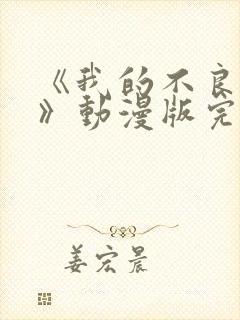 《我的不良
》動漫版完
姜宏晨